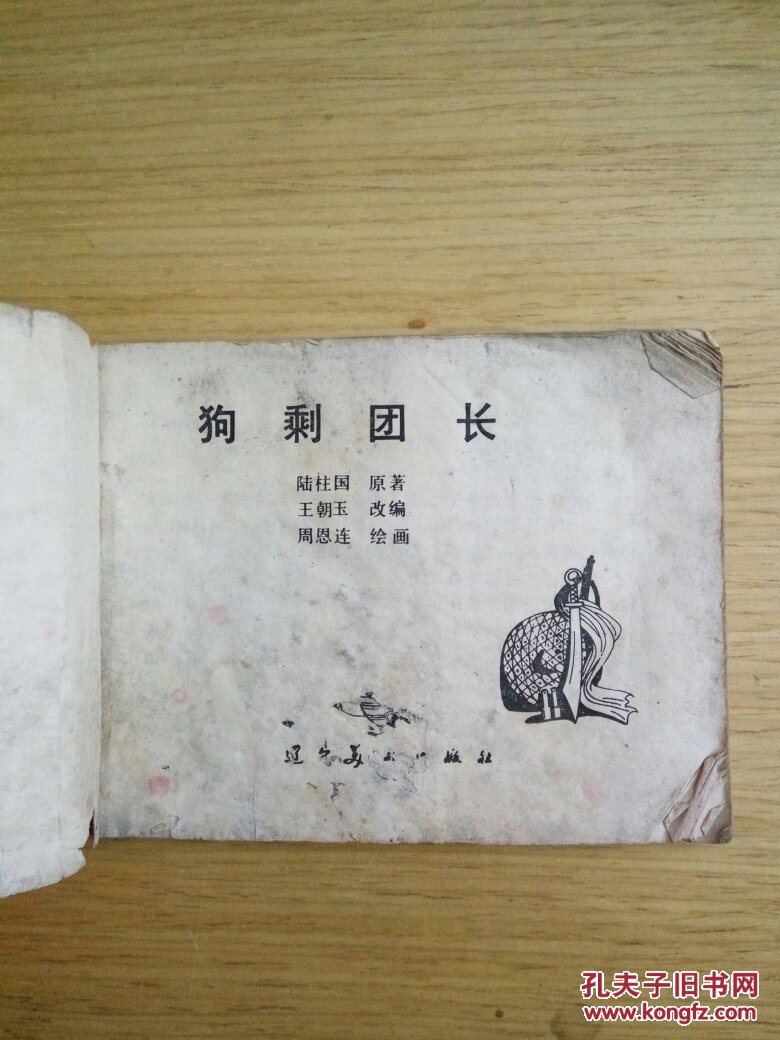 狗剩团长
陆柱国 原著
王朝玉 改编
周恩连 绘画
辽宁美术出版社
孔夫子旧书网
www.kongfz.com